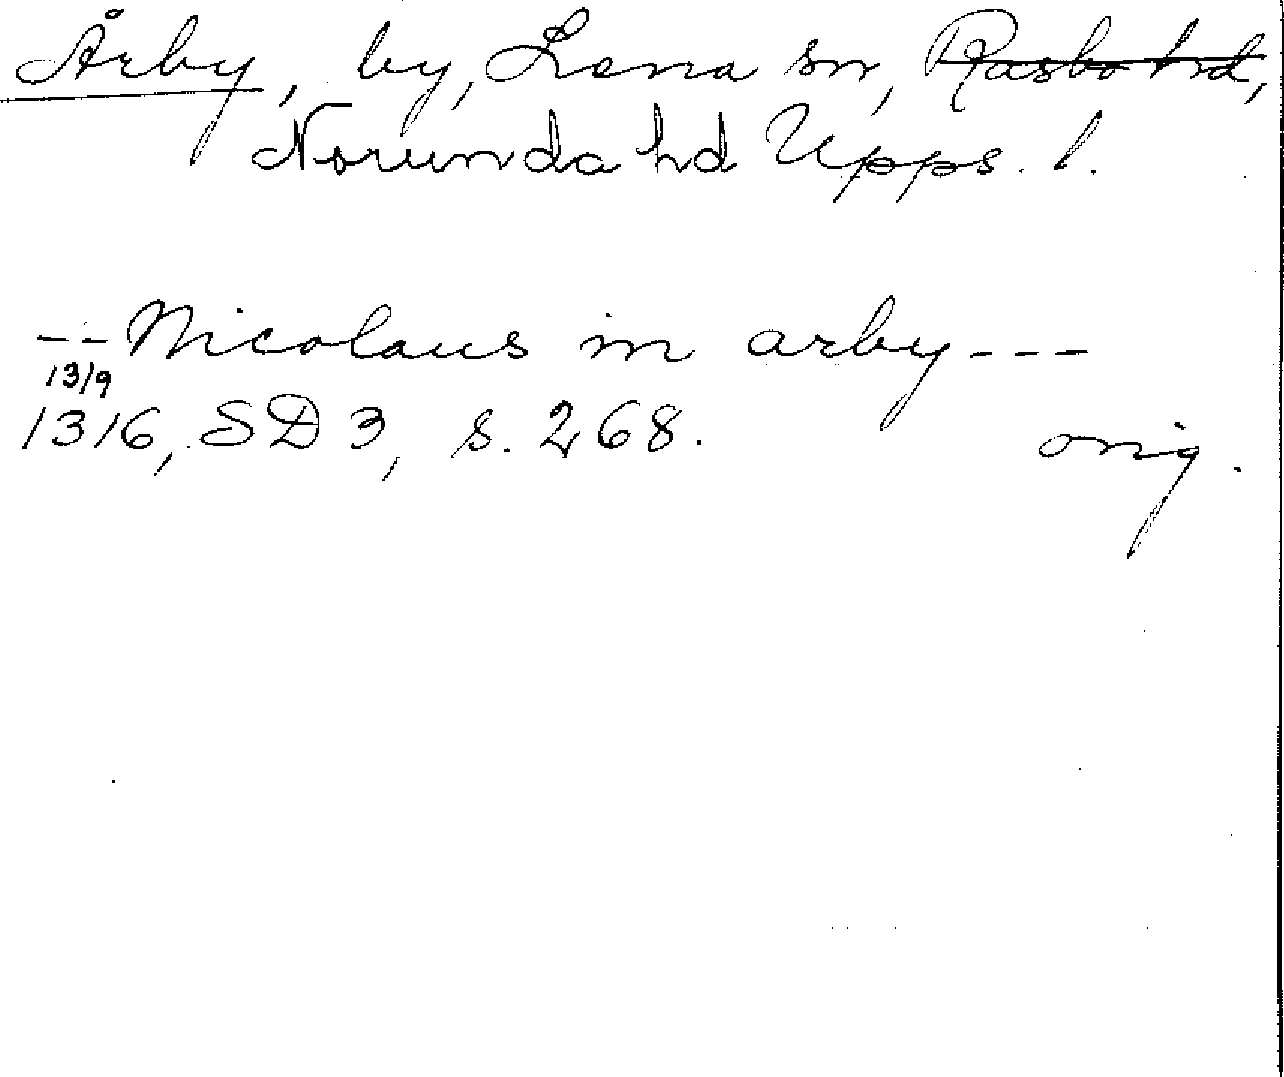 Årby, by, Lena sn, Rasbo hd,
Norunda hd Upps. l.
-- Nicolaus in arby ---
13/9
1316, SD 3, s. 268.
orig.